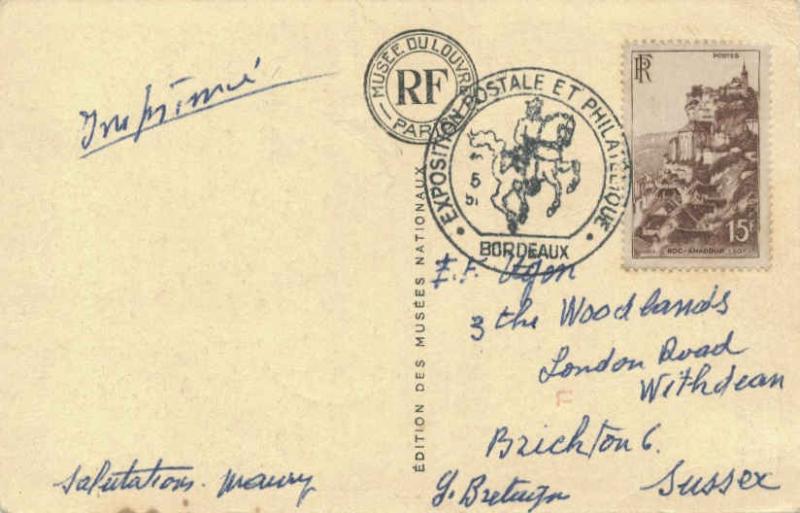 Imprimé
MUSÉE DU LOUVRE
RF
PARIS
EXPOSITION POSTALE ET PHILATELIQUE
5
BORDEAUX
RF
POSTES
15F
ROC-AMADOUR (LOT)
ÉDITION DES MUSÉES NATIONAUX
E. F.
3 the Woodlands
London Road
Withdean
Brichton 6.
Sussex
G. Bretagn
Salutations. Maury